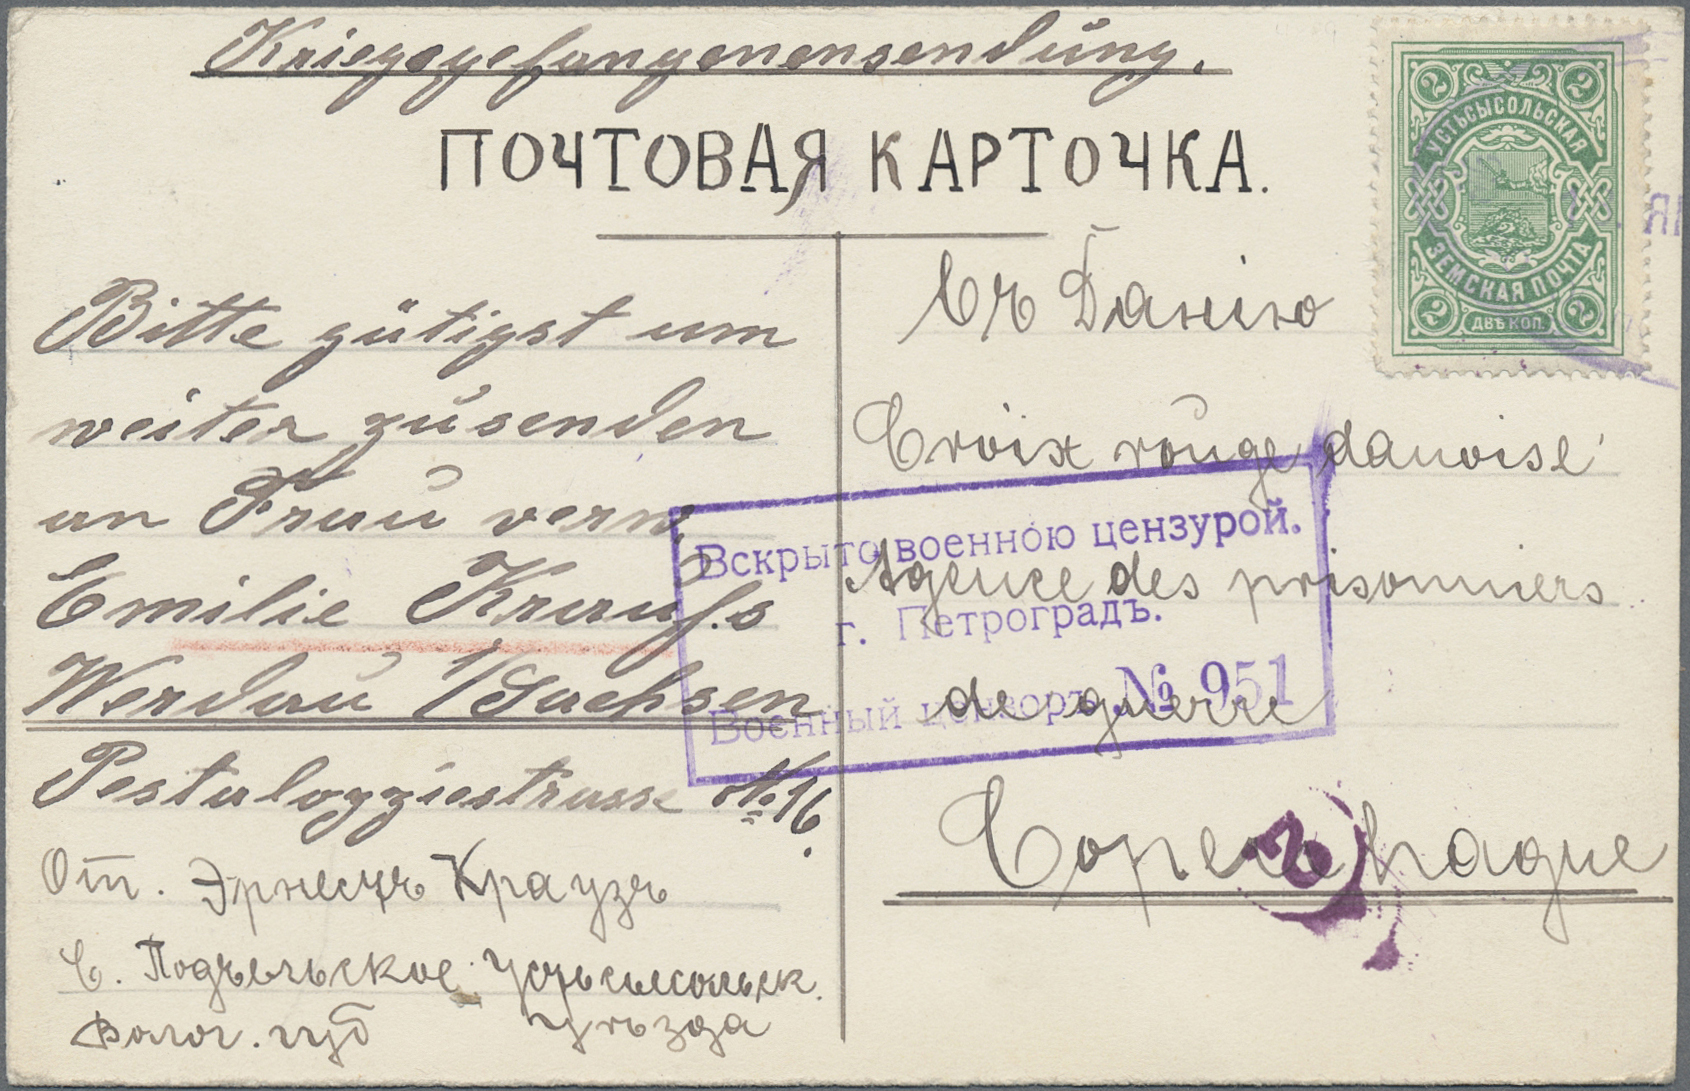 Kriegsgefangenensendung.
ПОЧТОВАЯ КАРТОЧКА.
2 2
УСТЬСЫСОЛЬСКАЯ
ЗЕМСКАЯ ПОЧТА
2 ДВѢ КОП. 2
Bitte gütigst um
weiter zusenden
an Frau verw.
Emilie Krauß
Werdau i/Sachsen
Pestalozziestrasse No 16.
От. Эрнестъ Краузъ
С. Подъельское Устьсысольск.
Волог. губ уѣзда
Въ Данію
Croix rouge danoise
Agence des prisonniers
de guerre
Copenhague
Вскрыто военною цензурой.
г. Петроградъ.
Военный цензоръ № 951